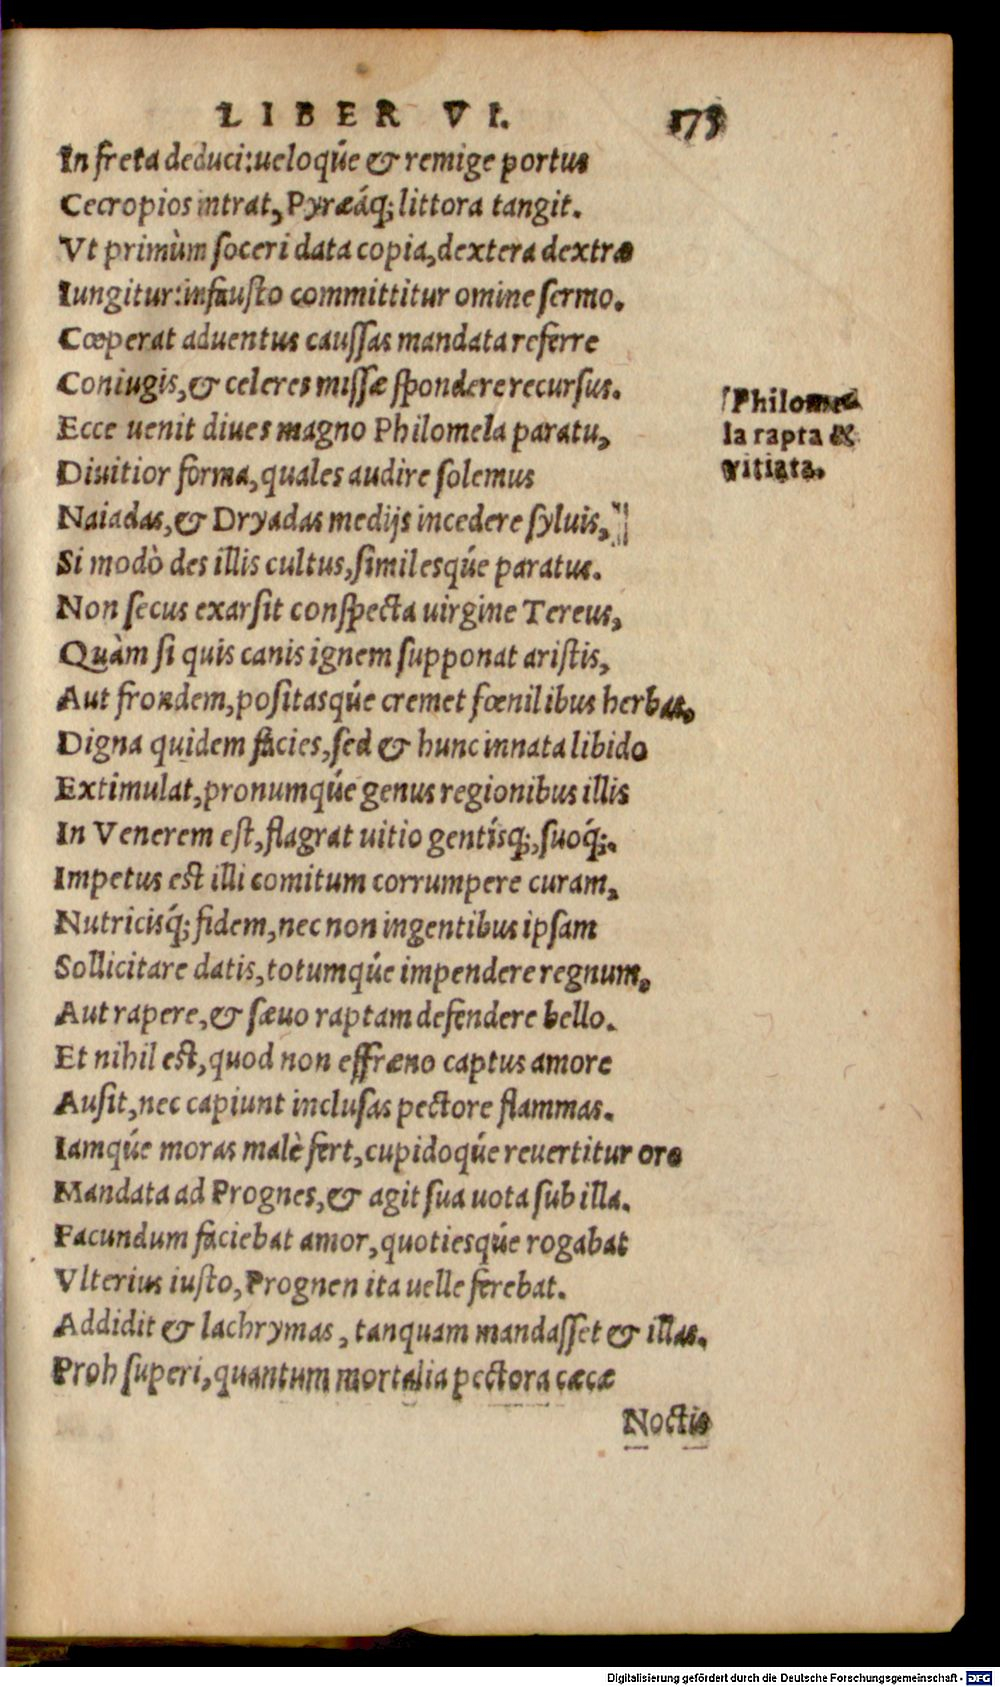 LIBER VI. 175
In freta deduci: ueloqúe & remige portus
Cecropios intrat, Pyræáq; littora tangit.
Vt primùm soceri data copia, dextera dextræ
Iungitur: infausto committitur omine sermo.
Cœperat aduentus caussas mandata referre
Coniugis, & celeres missæ spondere recursus.
Ecce uenit diues magno Philomela paratu,
Diuitior forma, quales audire solemus
Naiadas, & Dryadas medijs incedere syluis,
Si modò des illis cultus, similesqúe paratus.
Non secus exarsit conspecta uirgine Tereus,
Quàm si quis canis ignem supponat aristis,
Aut frondem, positasqúe cremet fœnilibus herbas.
Digna quidem facies, sed & hunc innata libido
Extimulat, pronumqúe genus regionibus illis
In Venerem est, flagrat uitio gentísq;, suoq́;.
Impetus est illi comitum corrumpere curam,
Nutricisq́; fidem, nec non ingentibus ipsam
Sollicitare datis, totumqúe impendere regnum,
Aut rapere, & sæuo raptam defendere bello.
Et nihil est, quod non effræno captus amore
Ausit, nec capiunt inclusas pectore flammas.
Iamqúe moras malè fert, cupidoqúe reuertitur ore
Mandata ad Prognes, & agit sua uota sub illa.
Facundum faciebat amor, quotiesqúe rogabat
Vlterius iusto, Prognen ita uelle ferebat.
Addidit & lachrymas, tanquam mandasset & illas.
Proh superi, quantum mortalia pectora cæcæ
Noctis
Philome
la rapta &
vitiata.
Digitalisierung gefördert durch die Deutsche Forschungsgemeinschaft - DFG